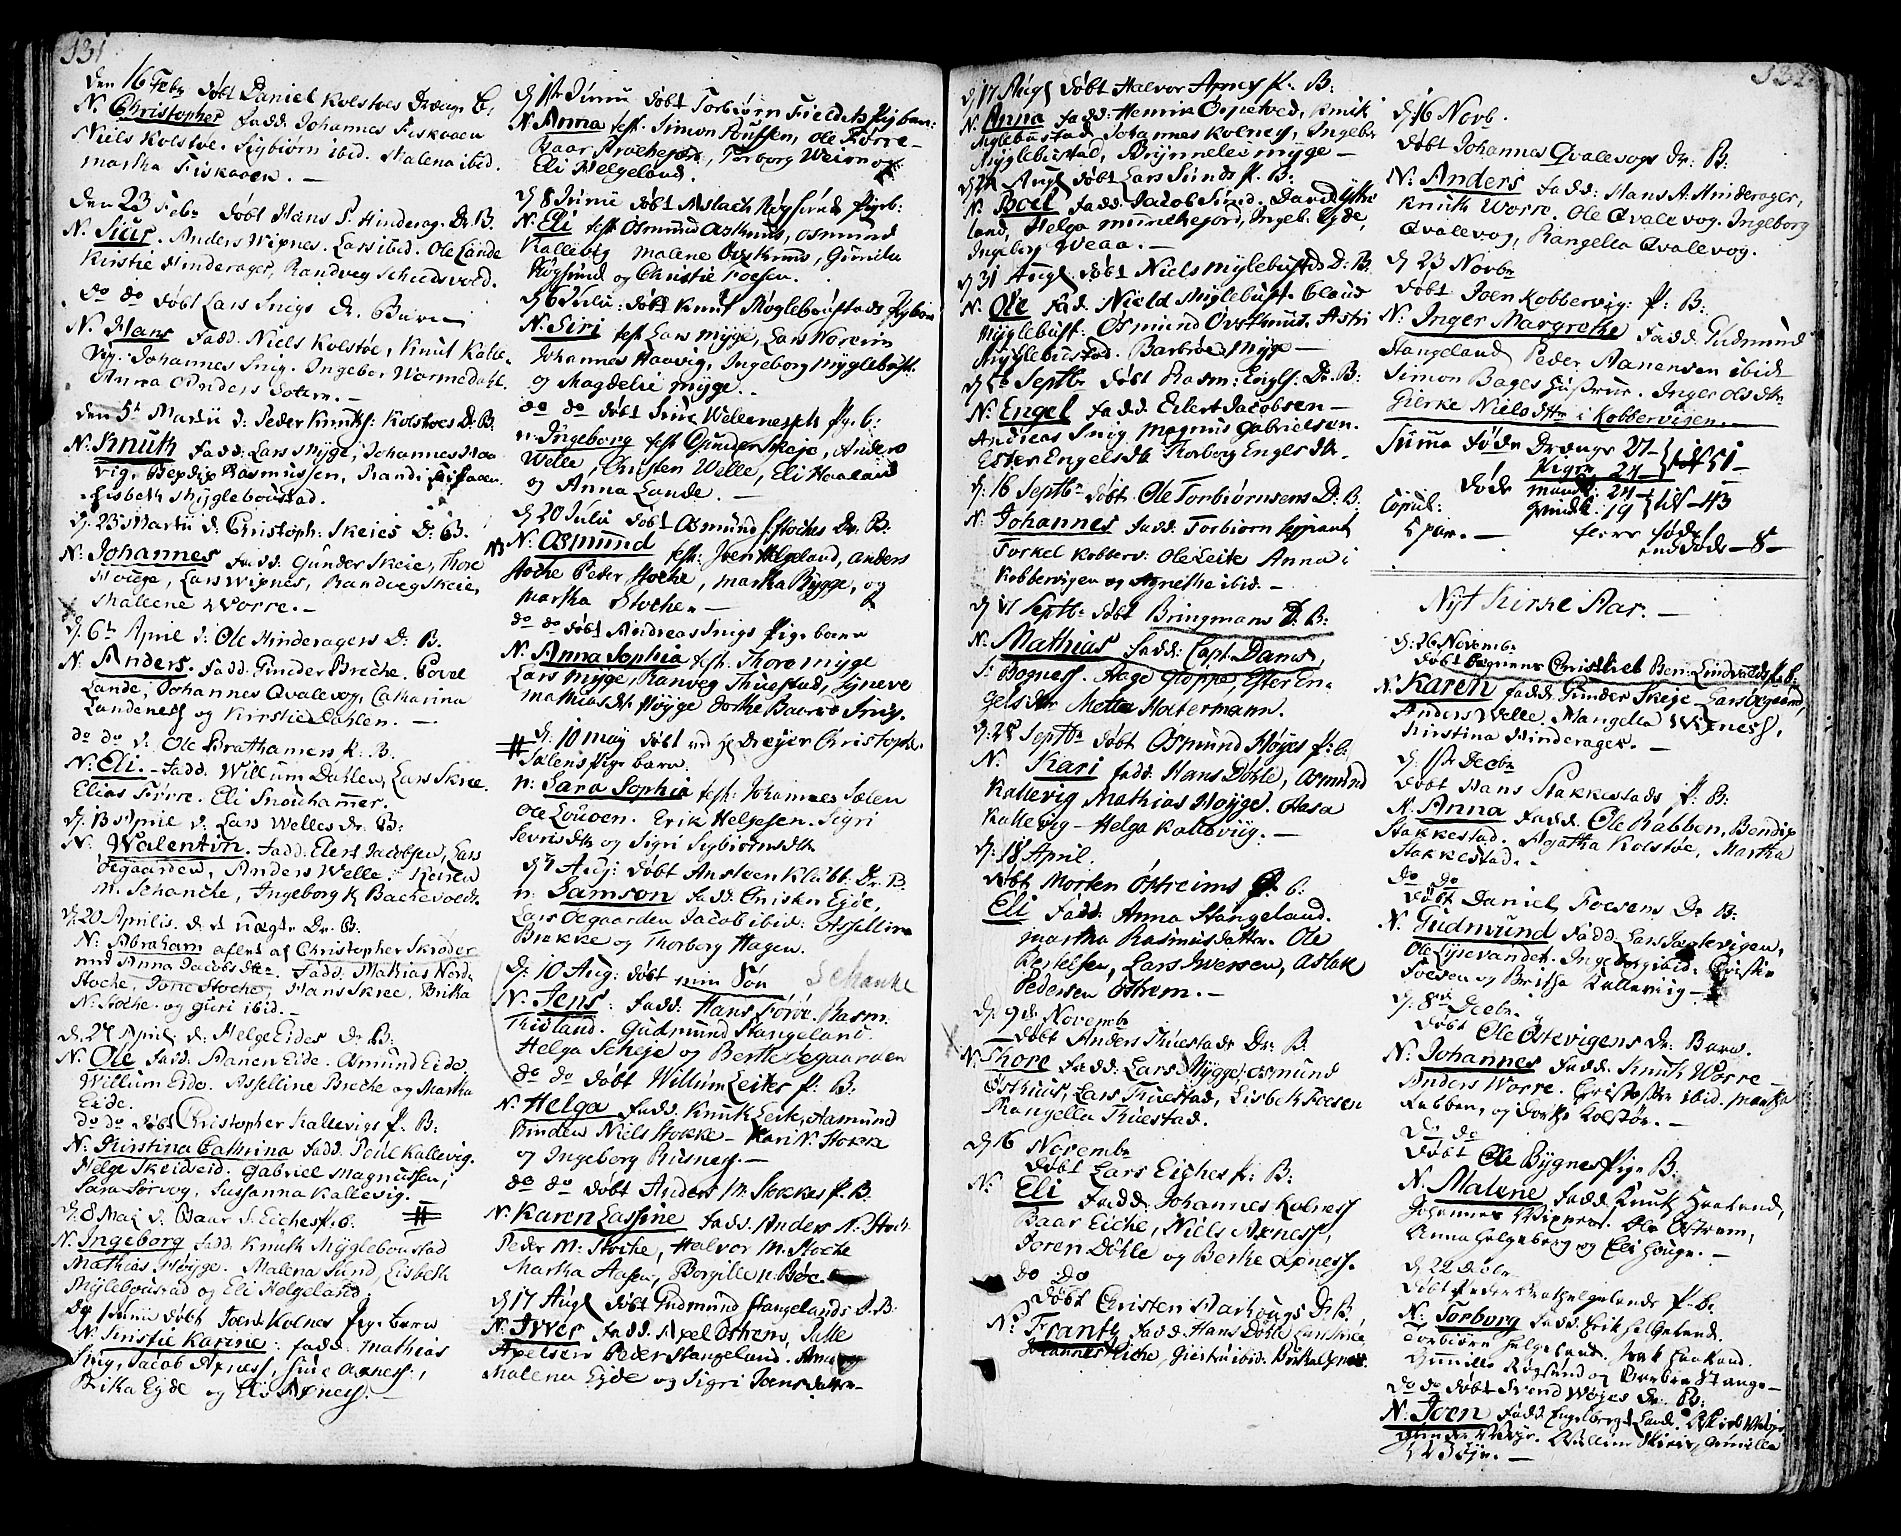 131
den 16 Febr døbt Daniel Kolstoes Drænge B.
N. Christopher Fadd. Johannes Fiskaaen
Niels Kolstoe. Sigbiørn ibid. Malena ibid.
Martha Fiskaaen. —
den 23 Febr døbt Hans S. Hinderag. Dr. B.
N. Siur. Anders Wixnes. Lars ibid. Ole Lande
Kirstie Hinderager, Randveg Scheidsvold.
do do døbt Lars Snigs Dr. Barn
N. Hans Fadd. Niels Kolstøe, Knut Kalle-
vig. Johannes Snig. Ingebor Warmedahl.
Anna Anders
den 5t Martii d: Peder Knuts: Kolstoes D: B.
N: Knuth Fadd: Lars Myge, Johannes Haa
vig. Bendix Rasmussen, Randi Fiskaaen
Lisbeth Mygleboustad.
d: 23 Martii d: Christoph: Skeies D: B.
N: Johannes Fadd: Gunder Skeie, Thore
Houge, Lars Wixnes, Randveg Skeie,
Malene Worre. —
d: 6t April d: Ole Hinderagers D: B.
N: Anders. Fadd: Gunder Breche. Povel
Lande, Johannes Qvalevog, Catharina
Landenes og Kirstie Dahlen. —
do do d: Ole Brathamers P. B.
N: Eli. Fadd. Willum Dahlen, Lars Skree.
Elias Førre. Eli Snouhammer.
d: 13 April d: Lars Welles Dr: B:
N: Walentin. Fadd. Elert Jacobsen, Lars
Øegaarden, Anders Welle.
M. Schanche, Ingeborg K Bachevoldt.
d: 20 Aprilis. d. et uægte Dr. B:
N: Abraham aflet af Christopher Skrøder
med Anna Jacobsdtr. Fadd. Mathias Nord-
Stoche, Tone Stoche, Hans Skree, Brita
N. Stoche. og Guri ibid. —
d. 27 April d: Helge Eides Dr B:
N: Ole Fadd. Aanen Eide. Osmund Eide.
Willum Eide. Asseline Breche og Martha
Eide.
do do døbt Christopher Kallevigs P. B:
N: Kirstina Cathrina Fadd. Poul Kallevig.
Helge Skeidseid. Gabriel Magnussen,
Sara Sørvog, Sussanna Kallevig.
d. 8 Maj d: Baar S. Eiches P. B. #
N. Ingeborg Fadd. Knuth Mygleboustad
Mathias Høyge. Malena Sund, Lisbeth
Mylebousad og Eli Helgeland.
d 1 Junii døbt Joen Kolnes Pige barn
N. Kirstie Karine: Fadd: Mathias
Snig, Jacob Axness, Siure Axness,
Brita Eyde og Eli Axness. —
d: 1st Junii døbt Torbiørn Fieldets Pig barn:
N: Anna test: Simon Poulsen, Ole Førre —
Baar Torborg Weim og
Eli Helgeland.
d 8 Junii døbt Aslach Røgsunds Pige b:
N: Eli test Osmund Ostkuus, Osmund
Kallevig Malene Ovstkuus, Gunnila
Røgsund og Christie Foesen.
d 6 Julii: døbt Knut Møglebousads Pig barn
N: Siri test Lars Myge, Lars Worein
Johannes Haavig, Ingeborg Myglebust.
og Magdelie Myge.
do do døbt Wellenes Pig. b:
n. Ingeborg test Gunder Skeje, Anders
Welle, Christen Welle, Eli Haaland
og Anna Lande. —
d 20 Julii døbt Osmund Stoches Dr. B:
N: Osmund test: Joen Helgeland, Anders
Stoche Peder Stoche, Martha Rygge, og
Martha Stoche. —
do do døbt Andreas Snigs Pige barn
N. Anna Sophia test: Thore Myge
Lars Myge, Ranveg Thuestad, Syneve
Mathias dt Høyge Dorthe Baars Snig.
# d: 10 May døbt ved Hr Dreyer Christophr.
Salens Pige barn.
n: Sara Sophia test: Johannes Salen
Ole Louven. Erik Helgesen. Sigri
Sevris dtr og Sigri Sigbiørns dtr.
d 7 Aug: døbt Ansteen Klubt: Dr. B.
n: Samson Fadd: Eyde,
Lars Oegaarden Jacob ibid: Asseline
Brekke og Thorborg Hagen.
d: 10 Aug: døbt min Søn Schanke
N. Jens: Fadd: Hans Førre. Rasm:
Thisland. Gudmund Stangeland.
Helga Scheje og Berthe Øegaarden
do do døbt Willum Leites P. B:
N. Helga Fadd. Knut Leite, Aamund
Kinden Niels Stokke — Kari N. Stokke
og Ingeborg Rusnes. —
do do døbt Anders M. Stockes P. B.
N. Karen Lassine Fadd. Anders N. Stoch
Peder M: Stoche, Halvor M. Stoche
Martha Aasen, Borgille n. Bøe.
d 17 Aug døbt Gudmund Stangelands D. B:
N. Iver Fadd. Axel Østrem, Salle
Axelsen Peder Stangeland. Anna
Malena Eyde og Sigri Joensdatter.
132
d 17 Aug døbt Halvor Axnes P. B:
N: Anna Fadd: Henrik Ospetved, Knut
Myglebustad Johannes Kolness, Ingebr
Myglebustad, Brynnele Myge —
d 24 Aug døbt Lars Sunds P. B:
N: Boel Fadd. Jacob Sund. David
land, Helga Munkejord, Ingeb. Eyde,
Ingeborg Weaa. —
d 31 Aug døbt Niels Mylebustds D. B.
N. Ole Fad. Nield Myglebust. Claud
Myglebust: Osmund Ovstkuus. Astri
Myglebustad. Barbroe Myge —
d: Septbr døbt Rasm: Engels: Dr. B:
N: Engel Fadd. Eilert Jacobsen —
Andreas Snig Magnus Gabrielsen.
Ester Engelsdtr Thorborg Englsdtr.
d: 16 Septbr døbt Ole Torbiørnsens D: B.
N: Johannes Fadd: Torbiørn
Torkel Kobberv: Ole Leite Anna i
Kobbervigen og Agnethe ibid. —
d 17 Septbr døbt Bringmans D. B:
N: Mathias Fadd: Capt. Dams,
S: Bogness. Hage Gloppe, Ester En-
gelsdtr Metta Holtermann.
d: 28 Septbr døbt Osmund Høyes P: b:
N: Kari Fadd: Hans Døhle, Osmund
Kallevig Mathias Høyge. Aasa
Kallevig — Helga Kallevig. —
d: 18 April.
døbt Morten Østreims P. b:
Eli Fadd: Anna Stangeland.
Martha Rasmusdatter. Ole
Kestelsen, Lars Iversen, Aslak
Pedersen Østrem. —
d: 9de Novembr
døbt Anders Thuestads Dr. B.
N: Thore Fadd: Lars Mygge, Osmund
Østhuus, Lars Thuestad, Lisbeth Foesen
Rangella Thuestad.
d 16 Novembr
døbt Lars Eiches P: B:
N: Eli Fadd: Johannes Kolness
Baar Eiche, Niels Axness,
Joren Døhle og Berthe Axness.
do do
Døbt Christen Aarhougs Dr B.
N: Frantz Fadd: Hans Døhle
Johannes Eiche, ibid.
d 16 Novb.
døbt Johannes Qvalevogs Dr. B:
N: Anders Fadd: Hans A. Hinderager,
Knuth Worre. Ole Qvalevog. Ingeborg
Qvalevog, Rangella Qvalevog.
d 23 Novbr
døbt Joen Kobbervig: P: B:
N: Inger Margrethe Fadd: Gudmund
Stangeland Peder Aanensen ibid
Simon Bages Hustrue. Inger Olsdtr
Gierke Nielsdtr i Kobbervigen. —
Summa Fødde Drænge 27 — } tilf 51 —
Piger 24 —
Døde Mandk: 24 — } tilf — 43
Qvindk: 19
Copul:
5 par. —
flere fødde
end døde — 8 —
Nyt Kirke Aar. —
d: 26 Novembr
døbt Christlieb Ben: Lindvalds P. B:
N: Karen Fadd: Gunder Skeje Lars Øegaard,
Anders Welle. Rangella Wixness,
Kirstina Hinderager. —
d. 1st Decbr
døbt Hans Stakkestads P. B:
N. Anna Fadd: Ole Rabben, Bendix
Stakkestad. Agatha Kolstøe, Martha
Stakkestad.
do do
døbt Daniel Foesens Dr B:
N. Gudmund Fadd. Lars
Ole Lysevandet. Ingeborg ibid.
Foesen og Britha Kallevig —
d. 8de Decbr.
døbt Ole Østevigens Dr: Barn.
N: Johannes Fadd: Knuth Worre —
Anders Worre. ibid. Martha
Rabben, og Kolstøe. —
do do
døbt Ole Bygnes Pige B:
N. Malene Fadd. Knuth Haaland,
Johannes Ole Østrem,
Anna Helgeborg og Eli Houge. —
d 22 Decbr
døbt Peder P. B.
N: Torborg Fadd. Erik Helgeland.
Torbiørn Helgeland. Haaland.
Gunille Røgsund og Stange-
do do døbt Svend Woyes Dr: B:
N: Joen Fadd Engelbregt Lande.
Gunilla